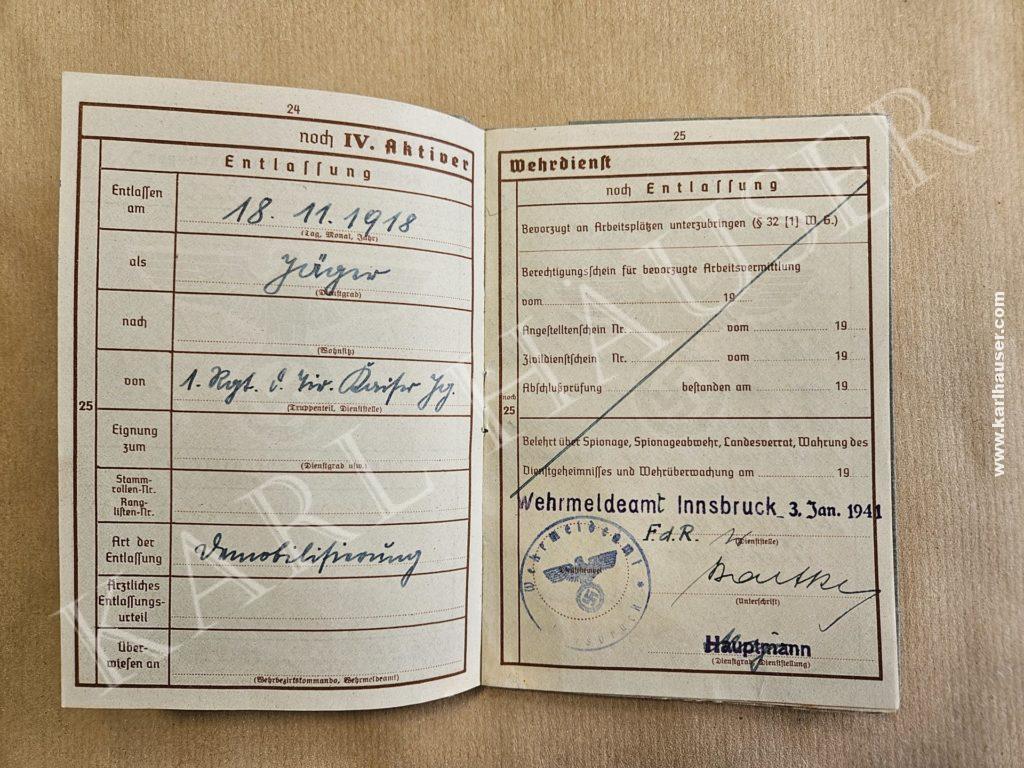 24
noch IV. Aktiver
Entlassung
Entlassen am
18. 11. 1918
(Tag, Monat, Jahr)
als
Jäger
(Dienstgrad)
nach
(Wohnsitz)
von
1. Rgt. d. Tir. Kaiser Jg.
(Truppenteil, Dienststelle)
25
Eignung zum
(Dienstgrad usw.)
Stamm-
rollen-Nr.
Rang-
listen-Nr.
Art der
Entlassung
Demobilisierung
Ärztliches
Entlassungs-
urteil
Über-
wiesen an
(Wehrbezirkskommando, Wehrmeldeamt)
25
Wehrdienst
noch Entlassung
Bevorzugt an Arbeitsplätzen unterzubringen (§ 32 [1] W. G.)
Berechtigungsschein für bevorzugte Arbeitsvermittlung
vom 19
Angestelltenschein Nr. vom 19
Zivildienstschein Nr. vom 19
Abschlußprüfung bestanden am 19
noch
25
Belehrt über Spionage, Spionageabwehr, Landesverrat, Wahrung des
Dienstgeheimnisses und Wehrüberwachung am 19
Wehrmeldeamt Innsbruck 3. Jan. 1941
F.d.R.
(Dienststelle)
Wehrmeldeamt
Dienststempel
Innsbruck
(Unterschrift)
Hauptmann
(Dienstgrad, Dienststellung)
KARL HÄUSER
www.karlhauser.com